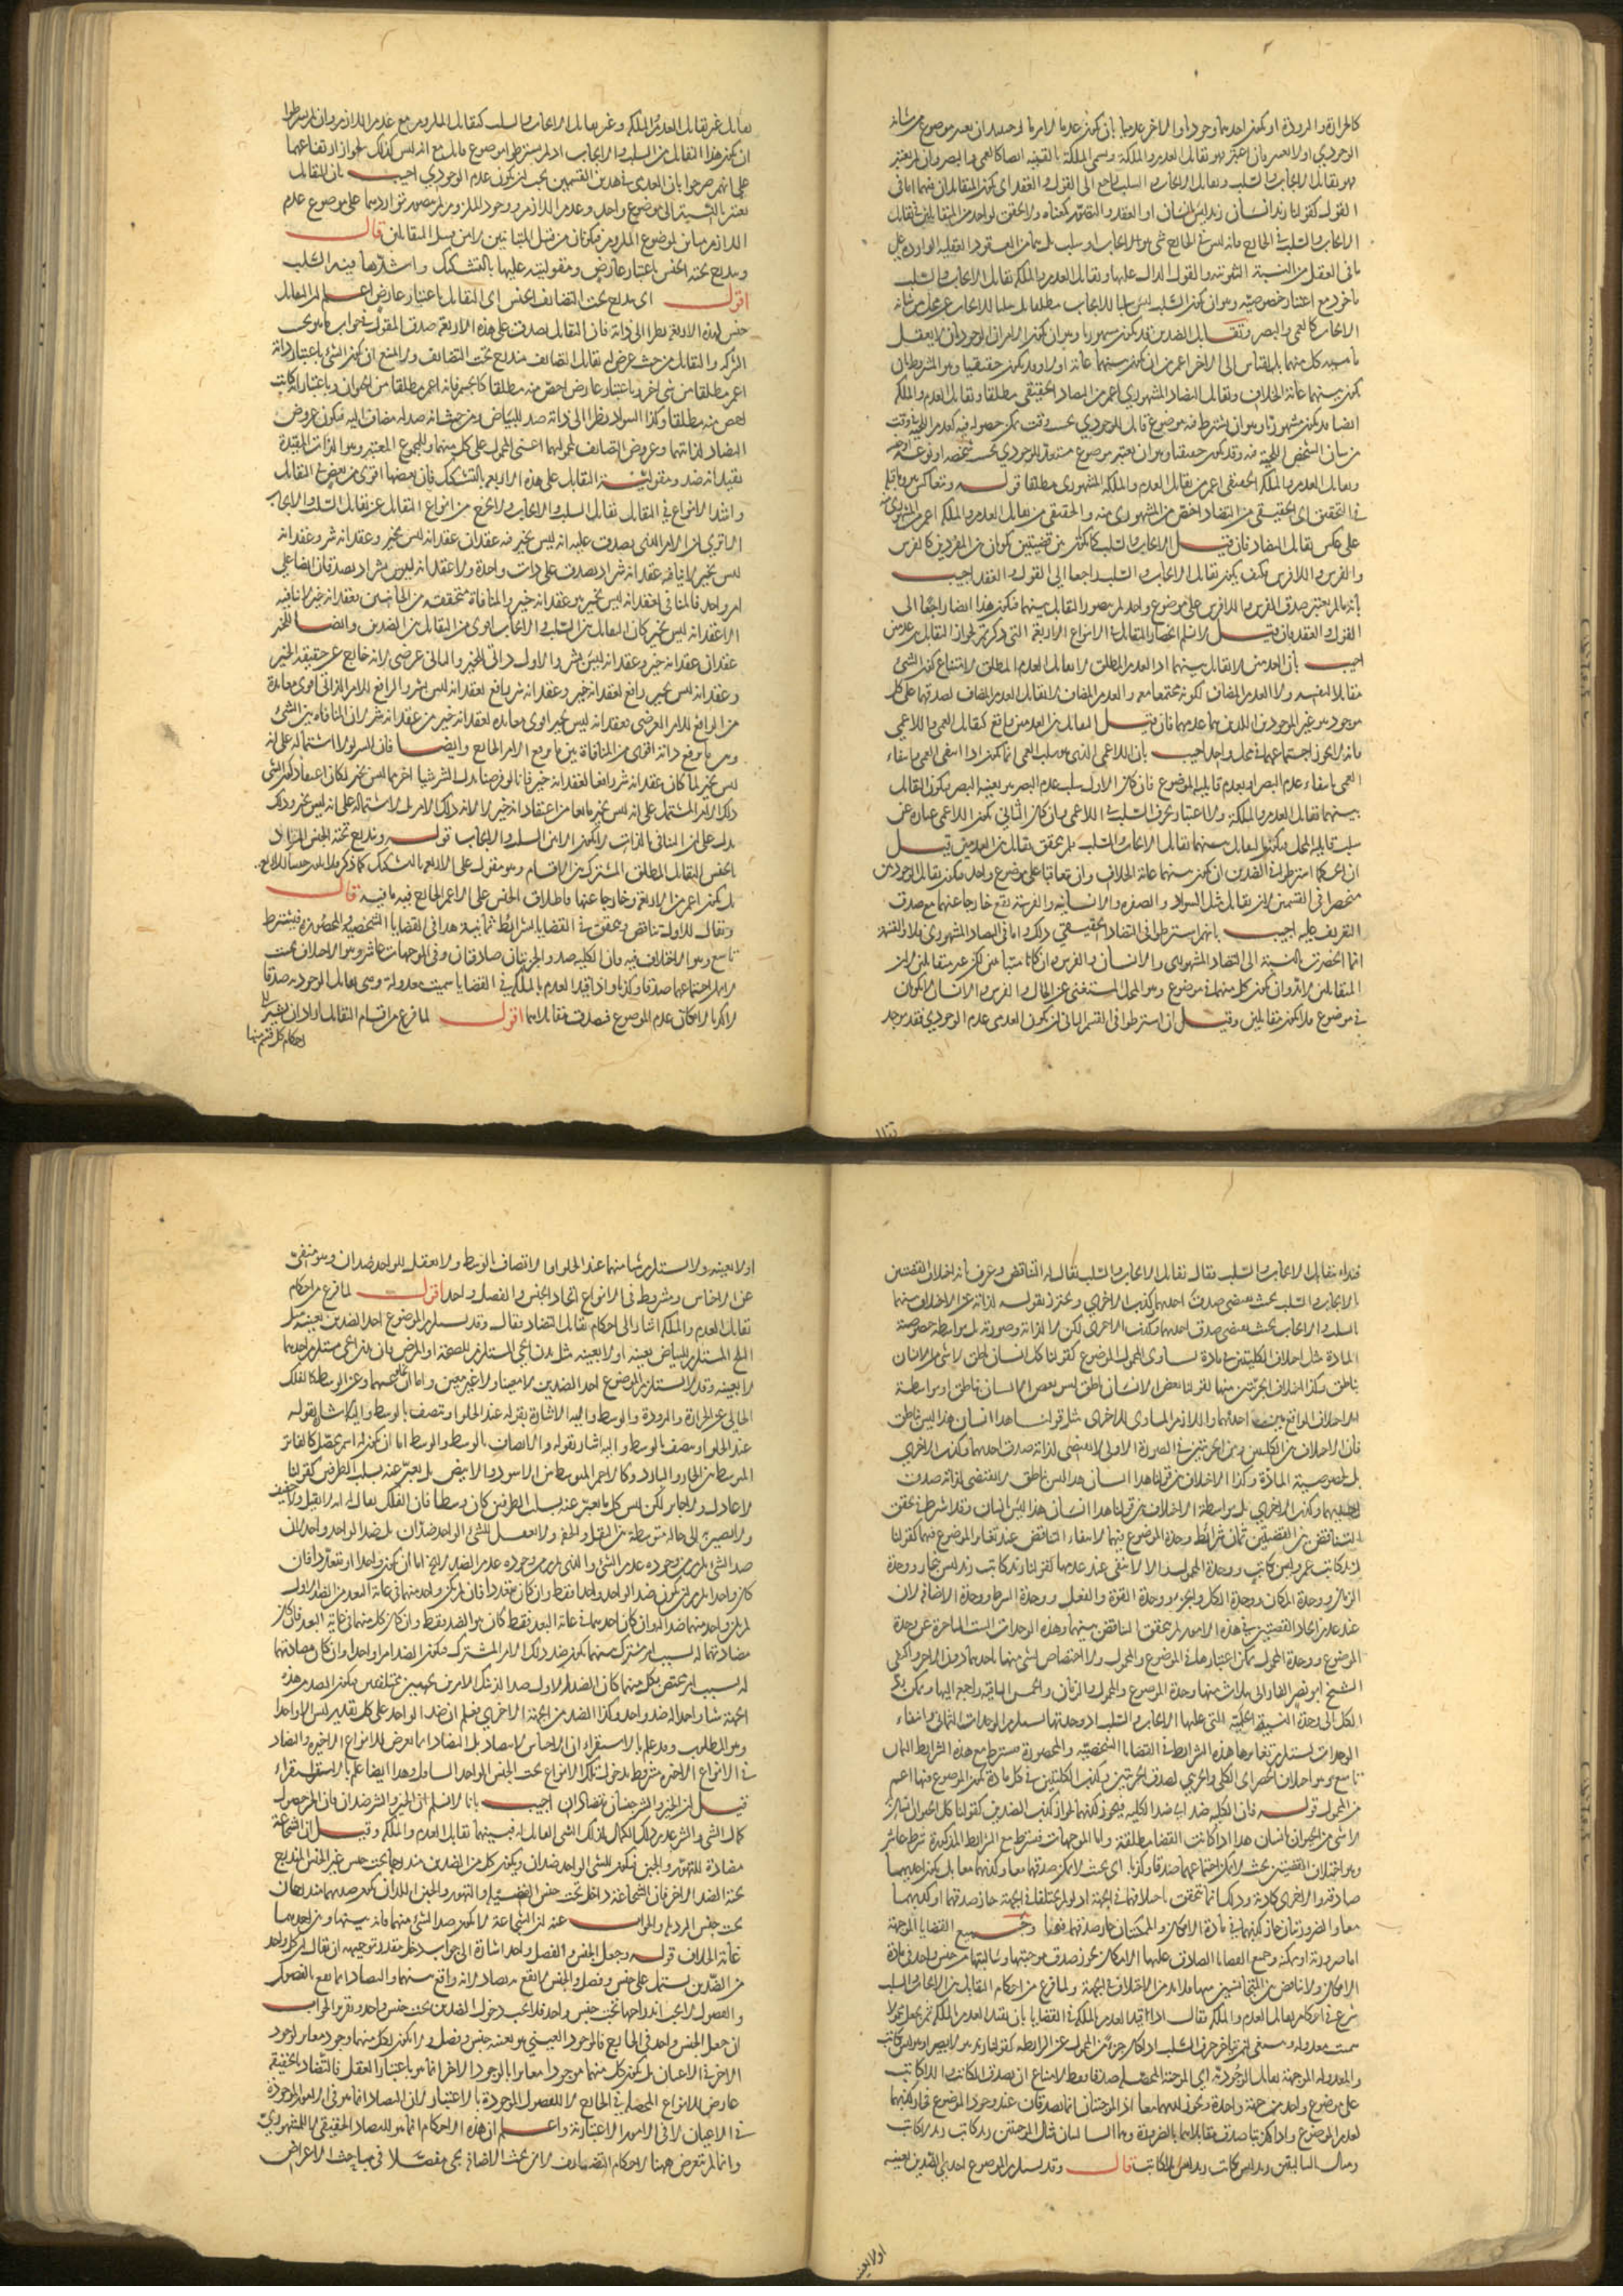 كالحرارة والبرودة او يكون احدهما وجوديا والاخر عدميا بان يكون عدما لامر ما وحينئذ ان يعتبر موضوع من شانه
الوجودي اولا يعتبر فان اعتبر فهو تقابل العدم والملكة ويسمى الملكة بالقنية ايضا كالعمى والبصر وان لم يعتبر
فهو تقابل الايجاب والسلب وتقابل الايجاب والسلب راجع الى القول والعقد اى يكون المتقابلان فيهما اما فى
القول كقولنا زيد انسان زيد ليس بانسان او العقد
الايجاب والسلب فى الخارج فانه ليس فى الخارج شئ هو ايجاب او سلب بل هما من العقود العقلية الواردة على
ما فى العقل من النسبة الثبوتية والقول الدال عليها وتقابل العدم والملكة تقابل الايجاب والسلب
ماخوذ مع اعتبار خصوصية وهو ان يكون السلب ليس سلبا للايجاب مطلقا بل سلبا للايجاب عن محل من شانه
الايجاب كالعمى والبصر وتقابل الضدين قد يكون مشهوريا وهو ان يكون الامران الوجوديان لا يعقل
ماهية كل منهما بالقياس الى الاخر اعم من ان يكون بينهما غاية او لا وقد يكون حقيقيا وهو المشروط بان
يكون بينهما غاية الخلاف وتقابل التضاد المشهوري اعم من التضاد الحقيقى مطلقا وتقابل العدم والملكة
ايضا قد يكون مشهوريا وهو ان يشترط فيه موضوع قابل للوجودي بحسب وقت يمكن حصوله فيه كعدم اللحية وقت
من شان الشخص اللحية فيه وقد يكون حقيقيا وهو ان يعتبر موضوع مستعد للوجودي بحسب شخصه او نوعه او جنسه
وتقابل العدم والملكة الحقيقى اعم من تقابل العدم والملكة المشهوري مطلقا قوله ويتعاكس هو وما قبله
فى التحقيق اى الحقيقى من التضاد اخص من المشهورى منه والحقيقى من تقابل العدم والملكة اعم من المشهورى منه
على عكس تقابل التضاد فان قيل الايجاب والسلب كما يكونان بين قضيتين يكونان بين المفردين كالفرس
والفرس واللافرس فكيف يكون تقابل الايجاب والسلب راجعا الى القول والعقد اجيب
بانه ما لم يعتبر صدق الفرس واللافرس على موضوع واحد لم يتصور التقابل بينهما فيكون هذا ايضا راجعا الى
القول والعقد فان قيل لا نسلم انحصار التقابل فى الانواع الاربعة التى ذكرتم لجواز التقابل بين عدمين
اجيب بان العدمين لا تقابل بينهما اذ العدم المطلق لا يقابل العدم المطلق لامتناع كون الشئ
مقابلا لنفسه ولا العدم المضاف لكونه مجتمعا معه والعدم المضاف لا يقابل العدم المضاف لصدقهما على كل
موجود هو غير الموجودين اللذين هما عدمهما فان قيل التقابل بين العدمين واقع كتقابل العمى واللاعمى
فانه لا يجوز اجتماعهما فى محل واحد اجيب بان اللاعمى الذى هو سلب العمى انما يكون اذا انتفى العمى بانتفاء
العمى بانتفاء عدم البصر او بعدم قابلية الموضوع فان كان الاول سلب عدم البصر هو بعينه البصر فيكون التقابل
بينهما تقابل العدم والملكة ولا اعتبار بحرف السلب فى اللاعمى وان كان الثانى يكون اللاعمى عبارة عن
سلب قابلية المحل فيكون التقابل بينهما تقابل الايجاب والسلب فلم يتحقق تقابل بين العدمين قيل
ان الحكماء اشترطوا فى الضدين ان يكون بينهما غاية الخلاف وان يتعاقبا على موضوع واحد فيكون تقابل الوجوديين
منحصرا فى القسمين لان تقابل مثل السواد والصفرة والانسانية والفرسية يقع خارجا عنهما مع صدق
التعريف عليه اجيب بانهم اشترطوا فى التضاد الحقيقى ذلك واما فى التضاد المشهورى فلا والقسمة
انما انحصرت بالنسبة الى التضاد المشهورى والانسان والفرس وان كانا متباينين لكن غير متقابلين لان
المتقابلين لا بد وان يكون كل منهما فى موضوع وهو المحل المستغنى عن الحال والفرس والانسان لا يكونان
فى موضوع فلا يكونان متقابلين وقيل ان اشترطوا فى القسم الثانى ان يكون العدمى عدم الوجودي فقد يوجد
تقابل
تقابل غير تقابل العدم والملكة وغير تقابل الايجاب والسلب كتقابل الملزوم مع عدم اللازم وان لم يشترطوا
ان يكون هذا التقابل من السلب والايجاب اذ لم يشترطوا موضوع قابل مع انه ليس كذلك لجواز ارتفاعهما
على انهم صرحوا بان العدمى فى هذين القسمين يجب ان يكون عدم الوجودي اجيب بان التقابل
يعتبر بالنسبة الى موضوع واحد وعدم اللازم ووجود الملزوم لم يتصور تواردهما على موضوع عدم
اللازم مباين لموضوع الملزوم فيكونان من قبيل المتباينين لا من قبيل المتقابلين قال
ويندرج تحته الجنس باعتبار عارض ومقوليته عليها بالتشكيك واشدها فيه السلب
اقول اى يندرج تحت التضائف الجنس اى التقابل باعتبار عارض اعلم ان التقابل
جنس لهذه الاربعة نظرا الى ذاته فان التقابل يصدق على هذه الاربعة صدق المقول فى جواب ما هو بحسب
الشركة والتقابل من حيث عرض له تقابل التضائف مندرج تحت التضائف ولا امتناع ان يكون الشئ باعتبار ذاته
اعم مطلقا من شئ اخر وباعتبار عارض اخص منه مطلقا
اخص منه مطلقا وكذا السواد نظرا الى ذاته ضد للبياض ومن حيث انه ضد له مضاف اليه فيكون عروض
التضاد لذاتهما وعروض التضائف
بقيد انه ضد ومقولية التقابل على هذه الاربعة بالتشكيك فان بعضها اقوى من بعض فى التقابل
واشد الانواع فى التقابل تقابل السلب والايجاب
الا ترى ان الامر الذى يصدق عليه انه ليس بخير فيه عقدان عقد انه ليس بخير وعقد انه شر وعقد انه
ليس بخير لا ينافيه عقد انه شر اذ يصدق على ذات واحدة ولا عقد انه ليس بشر اذ يصدقان ايضا على
امر واحد فالمنافى لعقد انه ليس بخير هو عقد انه خير والمنافاة متحققة من الجانبين فعقد انه خير لا ينافيه
الا عقد انه ليس بخير فكان التقابل بين السلب والايجاب اقوى من التقابل بين الضدين وايضا للخير
عقدان عقد انه خير وعقد انه ليس بشر والاول ذاتى للخير والثانى عرضى لانه خارج عن حقيقة الخير
وعقد انه ليس بخير رافع لعقد انه خير وعقد انه شر رافع لعقد انه ليس بشر والرافع للامر الذاتى اقوى معاندة
من الرافع للامر العرضى فعقد انه ليس بخير اقوى معاندة لعقد انه خير من عقد انه شر لان المنافاة بين الشئ
وبين ما يرفع ذاته اقوى من المنافاة بين ما يرفع الامر الخارج وايضا فان الشر لولا اشتماله على انه
ليس بخير لما كان عقد انه شر رافعا لعقد انه خير فانا لو فرضنا بدل الشر شيئا اخر مما ليس بخير لكان اعتقاد
ذلك الامر المشتمل على انه ليس بخير مانعا من اعتقاد انه خير لا لانه ذلك الامر بل لاشتماله على انه ليس بخير وذلك
يدل على ان التنافى بالذات لا يكون الا بين السلب والايجاب قوله ويندرج تحته الجنس المراد
بالجنس التقابل المطلق المشترك بين الاقسام وهو مقول على الاربعة بالتشكيك كما ذكر فلا يكون جنسا للاربع
بل يكون اعم من الاربعة وخارجا عنها فاطلاق الجنس على الاعم الخارج فيه ما فيه قال
ويقال للاول تناقض ويتحقق فى القضايا بشرائط ثمانية هذا فى القضايا الشخصية والمحصورة فيشترط
تاسع وهو الاختلاف فيه فان الكلية ضد والجزئيتان صادقتان وفى الموجهات عاشر وهو الاختلاف بحيث
لا يمكن اجتماعهما صدقا وكذبا واذا قيد العدم بالملكة فى القضايا سميت معدولة وهى تقابل الوجودية صدقا
لا كذبا لامكان عدم الموضوع فيصدق مقابلاهما اقول لما فرغ من اقسام التقابل اراد ان يشير الى
احكام كل قسم منها
فبداء بتقابل الايجاب والسلب فقال تقابل الايجاب والسلب يقال له التناقض وعرف بانه اختلاف القضيتين
بالايجاب والسلب بحيث يقتضى صدق احديهما كذب الاخرى ويحترز بقوله لذاته عن الاختلاف بينهما
بالسلب والايجاب بحيث يقتضى صدق احديهما كذب الاخرى لكن لا لذاته وصورته بل بواسطة خصوصية
المادة مثل اختلاف الكليتين فى مادة تساوى المحمول الموضوع كقولنا كل انسان ناطق لا شئ من الانسان
بناطق وكذا اختلاف الجزئيتين منها كقولنا بعض الانسان ناطق ليس بعض الانسان بناطق او بواسطة
الاختلاف الواقع بين احديهما واللازم المساوى للاخرى مثل قولنا هذا انسان هذا ليس بناطق
فان الاختلاف بين الكليتين وبين الجزئيتين فى الصورة الاولى لا يقتضى لذاته صدق احديهما وكذب الاخرى
بل لخصوصية المادة وكذا الاختلاف بين قولنا هذا انسان هذا ليس بناطق لا يقتضى لذاته صدق
احديهما وكذب الاخرى بل بواسطة الاختلاف بين قولنا هذا انسان هذا ليس بانسان وقد اشترط فى تحقق
التناقض بين القضيتين ثمان شرائط وحدة الموضوع فيهما لانتفاء التناقض عند تغاير الموضوع فيهما كقولنا
زيد كاتب عمرو ليس بكاتب ووحدة المحمول اذ الا لانتفى عند عدمها كقولنا زيد كاتب زيد ليس بنجار ووحدة
الزمان ووحدة المكان ووحدة الكل والجزء ووحدة القوة والفعل ووحدة الشرط ووحدة الاضافة لان
عند عدم اتحاد القضيتين فى هذه الامور لم يتحقق التناقض بينهما وهذه الوحدات الست المتاخرة عن وحدة
الموضوع ووحدة المحمول يمكن اعتبارها فى الموضوع والمحمول ولا اختصاص لشئ منها باحدهما دون الاخر واكتفى
الشيخ ابو نصر الفارابى بثلاث منها وحدة الموضوع والمحمول والزمان والخمس الباقية راجعة اليها ويمكن رد
الكل الى وحدة النسبة الحكمية التى عليها الايجاب والسلب اذ وحدتها تستلزم الوحدات الثمانى وانتفاء
الوحدات يستلزم تغايرها هذه الشرائط فى القضايا الشخصية والمحصورة يشترط مع هذه الشرائط الثمان
تاسع وهو اختلاف الحصر اى الكلى والجزئى لصدق الجزئيتين وكذب الكليتين فى كل مادة يكون الموضوع فيها اعم
من المحمول قوله فان الكلية ضد اى ضد الكلية فيجوز كذبهما لجواز كذب الضدين كقولنا كل حيوان انسان
لا شئ من الحيوان بانسان هذا اذا كانت القضايا مطلقة واما الموجهات فيشترط مع الشرائط المذكورة شرط عاشر
وهو اختلاف القضيتين بحيث لا يمكن اجتماعهما صدقا وكذبا اى بحيث لا يمكن صدقهما معا وكذبهما معا بل يكون احديهما
صادقة والاخرى كاذبة وذلك انما يتحقق باختلافهما فى الجهة اذ لو لم يختلفا فى الجهة جاز صدقهما او كذبهما
معا والضروريتان جاز كذبهما فى مادة الامكان والممكنتان جاز صدقهما فيها وجميع القضايا الموجهة
اما ضرورية او ممكنة وجميع القضايا الصادق عليها الامكان يجوز صدق موجبتها وسالبتها من جنس واحد فى مادة
الامكان ولا تناقض بين المتجانستين منهما فلا بد من الاختلاف فى الجهة ولما فرغ من احكام التقابل بين الايجاب والسلب
شرع فى احكام تقابل العدم والملكة فقال اذا قيد العدم بالملكة فى القضايا بان يقيد العدم بالملكة ثم يجعل محمولا
سميت معدولة
والمعدولة الموجبة تقابل الوجودية اى الموجبة المحصلة صدقا فقط لامتناع ان يصدق الكاتب واللاكاتب
على موضوع واحد من جهة واحدة ويجوز كذبهما معا اذ الموجبتان انما تصدقان عند وجود الموضوع فجاز كذبهما
لعدم الموضوع واذا كذبتا صدق مقابلاهما بالضرورة وهما السالبتان مثال الموجبتين زيد كاتب زيد لا كاتب
ومثال السالبتين زيد ليس بكاتب زيد ليس بلا كاتب قال وقد يستلزم الموضوع احد الضدين بعينه
اولا بعينه
اولا بعينه ولا يستلزم شيئا منهما عند الخلو او الاتصاف بالوسط ولا يعقل للواحد ضدان وهو منفى
عن الاجناس ومشروط فى الانواع اتحاد الجنس والفصل واحد اقول لما فرغ من احكام
تقابل العدم والملكة اشار الى احكام تقابل التضاد فقال وقد يستلزم الموضوع احد الضدين بعينه مثل
الثلج المستلزم للبياض بعينه او لا بعينه مثل بدن الحى المستلزم للصحة او المرض فان بدن الحى مستلزم احدهما
لا بعينه وقد لا يستلزم الموضوع احد الضدين لا معينا ولا غير معين واما الخالى عنهما وعن الوسط كالفلك
الخالى عن الحرارة والبرودة والوسط واليه الاشارة بقوله عند الخلو او يتصف بالوسط واليه اشار بقوله
عند الخلو او يتصف بالوسط واليه اشار بقوله والاتصاف بالوسط والوسط اما ان يكون له اسم محصل كالفاتر
المتوسط بين الحار والبارد وكالاحمر المتوسط بين الاسود والابيض بل يعبر عنه بسلب الطرفين كقولنا
لا عادل ولا جائر لكن ليس كل ما يعبر عنه بسلب الطرفين كان وسطا فان الفلك يقال له انه لا ثقيل ولا خفيف
ولا يصير به الى حالة متوسطة بين الثقل والخفة ولا يعقل للشئ الواحد ضدان بل ضد الواحد واحد لان
ضد الشئ يلزم من وجوده عدم الشئ والذى يلزم من وجوده عدم الضد لا يخ اما ان يكون واحدا او متعددا فان
كان واحدا لزم ان يكون ضد الواحد واحدا فقط وان كان متعددا فان لم يكن واحد منهما فى غاية البعد من الضد الاول
لم يكن واحد منهما ضدا له وان كان احدهما فى غاية البعد فقط كان هو الضد فقط وان كان كل منهما فى غاية البعد فان كان
مضادتهما له بسبب امر مشترك بينهما يكون ضد ذلك الامر المشترك فيكون الضد امرا واحدا وان كان مضادتهما
له بسبب امر يختص بكل منهما كان الضد الاول ضدا لذينك الامرين بجهتين مختلفتين فيكون الضد من هذه
الجهة شيئا واحدا له ضد واحد وكذا الضد من الجهة الاخرى فعلم ان ضد الواحد على كل تقدير ليس الا واحدا
وهو المطلوب وقد علم بالاستقراء ان الاجناس لا تتضاد بل التضاد انما يعرض للانواع الاخيرة والتضاد
فى الانواع الاخيرة مشروط بدخول تلك الانواع تحت الجنس الواحد السافل وهذا ايضا علم بالاستقراء
قيل ان الخير والشر جنسان متضادان اجيب بانا لا نسلم ان الخير والشر ضدان فان الخير حصول
كمال الشئ والشر عدم ذلك الكمال لذلك الشئ القابل له فبينهما تقابل العدم والملكة وقيل ان الشجاعة
مضادة للتهور والجبن فيكون للشئ الواحد ضدان ويكون كل من الضدين مندرجا تحت جنس غير الجنس المندرج
تحته الضد الاخر فان الشجاعة داخل تحت جنس الفضيلة والتهور والجبن اللذان يكونان ضديهما مندرجان
تحت جنس الرذيلة والجواب عنه ان الشجاعة لا يكون ضد الشئ منهما فانه بينهما وبين احدهما
غاية الخلاف قوله وجعل الجنس والفصل واحد اشارة الى جواب دخل مقدر وتوجيهه ان يقال ان كل واحد
من الضدين يشتمل على جنس وفصل والجنس لا يقع به تضاد لانه واقع بينهما والتضاد انما يقع بالفصول
والفصول لا يجب اندراجها تحت جنس واحد فلا يجب دخول الضدين تحت جنس واحد وتقرير الجواب
ان جعل الجنس واحد فى الخارج فالموجود العينى هو بعينه جنس وفصل ولا يكون لكل منهما وجود مغاير لوجود
الاخر فى الاعيان بل يكون كل منهما موجودا مغايرا بالوجود الاخر انما هو باعتبار العقل فالتضاد بالحقيقة
عارض للانواع المحصلة فى الخارج لا للفصول الموجودة بالاعتبار لان التضاد انما هو فى الامور الموجودة
فى الاعيان لا فى الامور الاعتبارية واعلم ان هذه الاحكام انما هو للتضاد الحقيقى لا للمشهورى
وانما لم يتعرض ههنا لاحكام التضايف لان بحث الاضافة يجئ مفصلا فى مباحث الاعراض